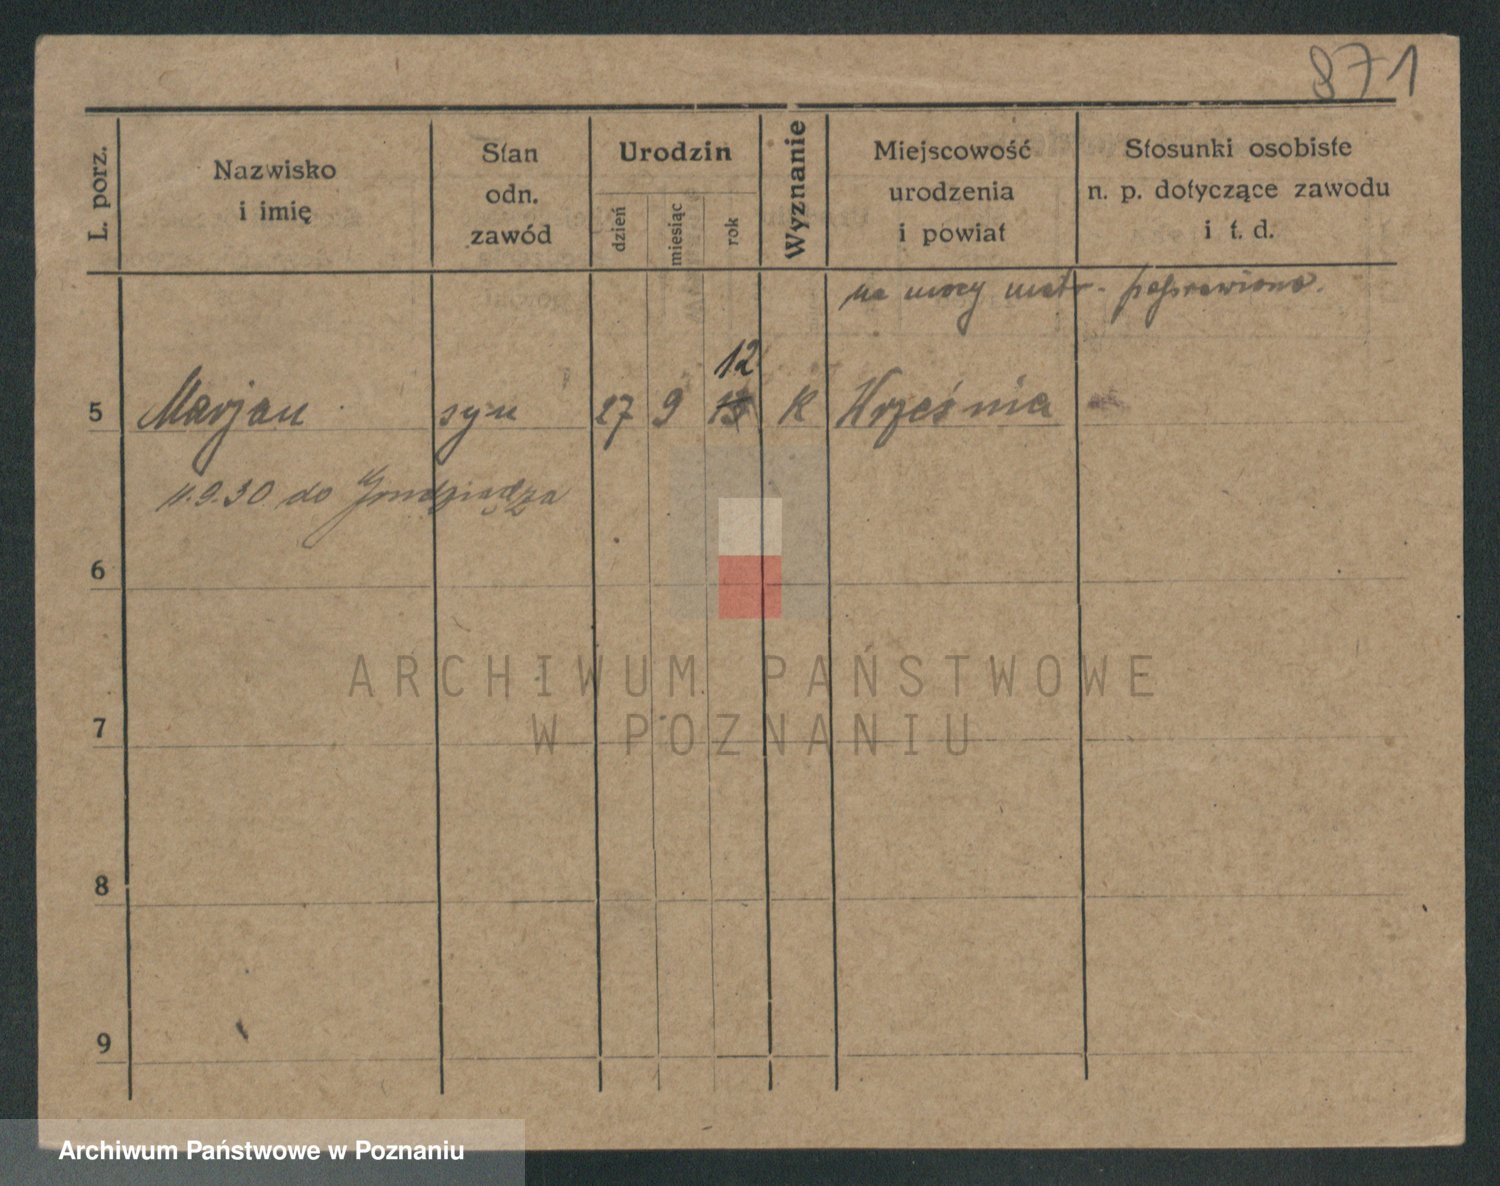 871
L. porz.
Nazwisko
i imię
Stan
odn.
zawód
Urodzin
dzień
miesiąc
rok
Wyznanie
Miejscowość
urodzenia
i powiat
Stosunki osobiste
n. p. dotyczące zawodu
i t. d.
na mocy metr. poprawiono.
12
5 Marjan syn 27 9 13 K Września
11.9.30 do Grudziądza
6
ARCHIWUM PAŃSTWOWE
7
W POZNANIU
8
9
Archiwum Państwowe w Poznaniu